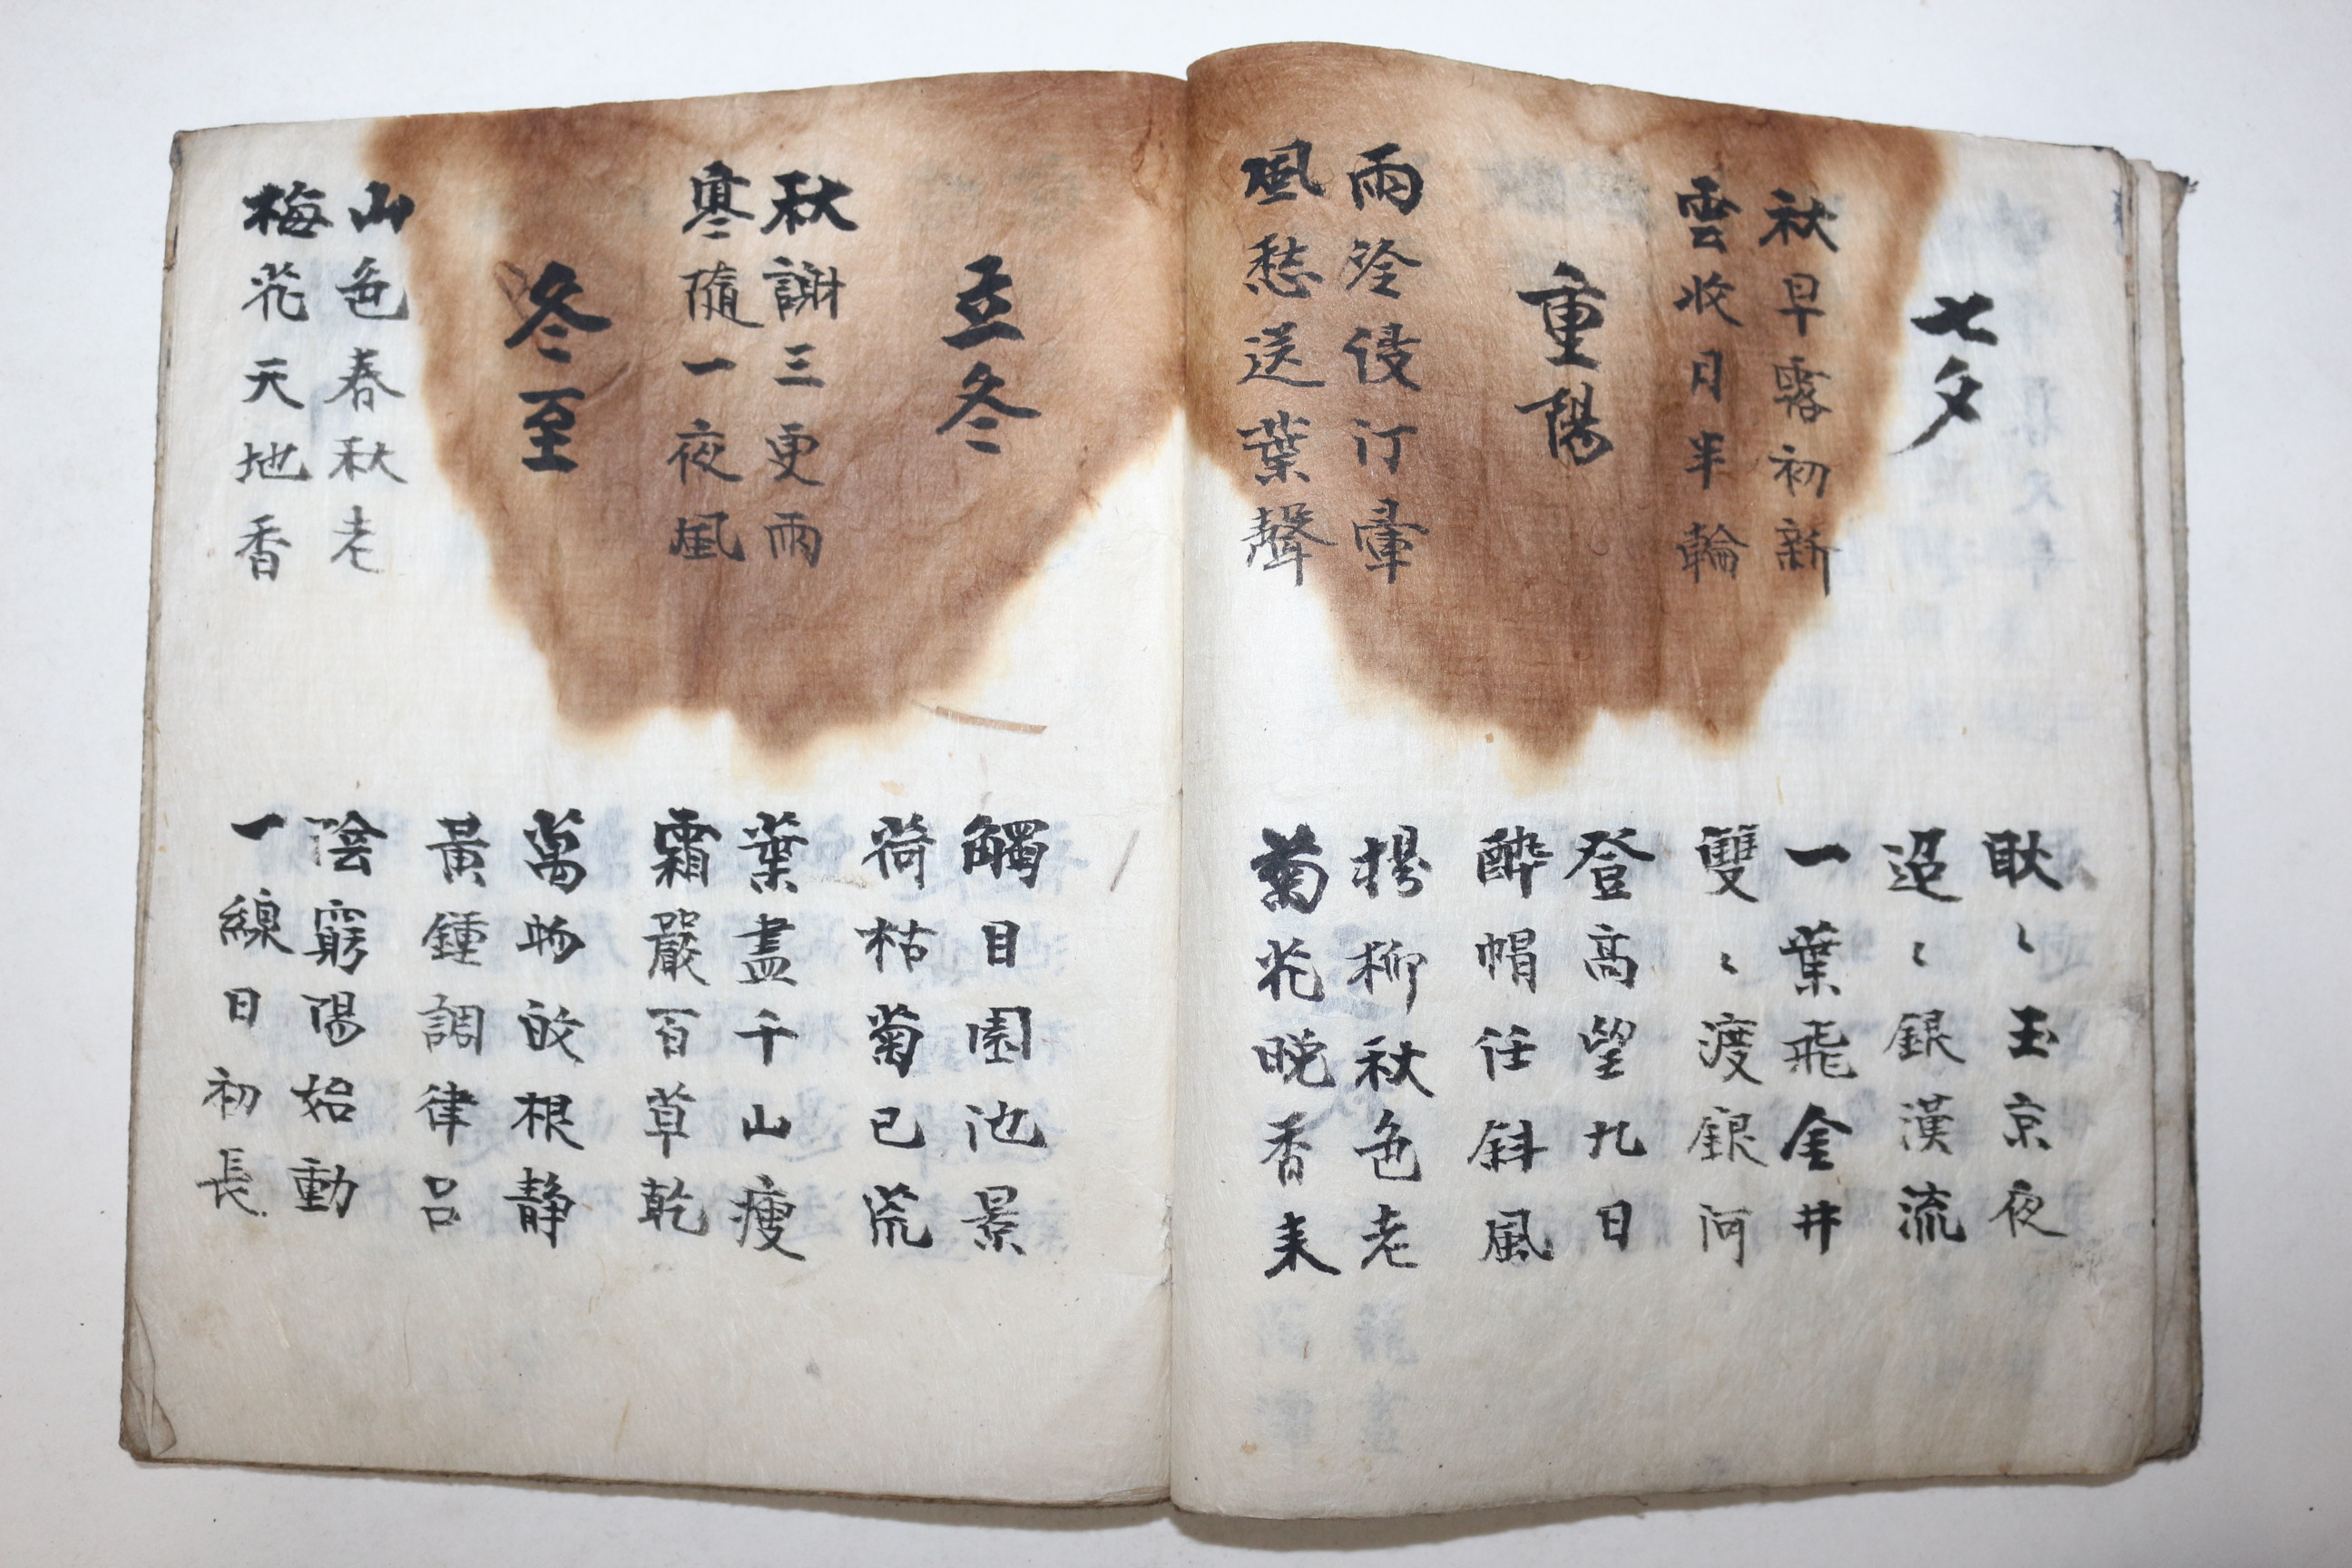 七夕
耿〻玉京夜
迢〻銀漢流
秋早露初新
雲收月半輪
一葉飛金井
雙〻渡銀河
重陽
登高望九日
醉帽任斜風
雨侵汀
風愁送葉聲
楊柳秋色老
菊花晩香来
立冬
觸目園池景
荷枯菊已荒
秋謝三更雨
寒隨一夜風
葉盡千山瘦
霜嚴百草乾
冬至
萬物皈根静
黃鍾調律呂
山色春秋老
梅花天地香
陰窮陽始動
一線日初長